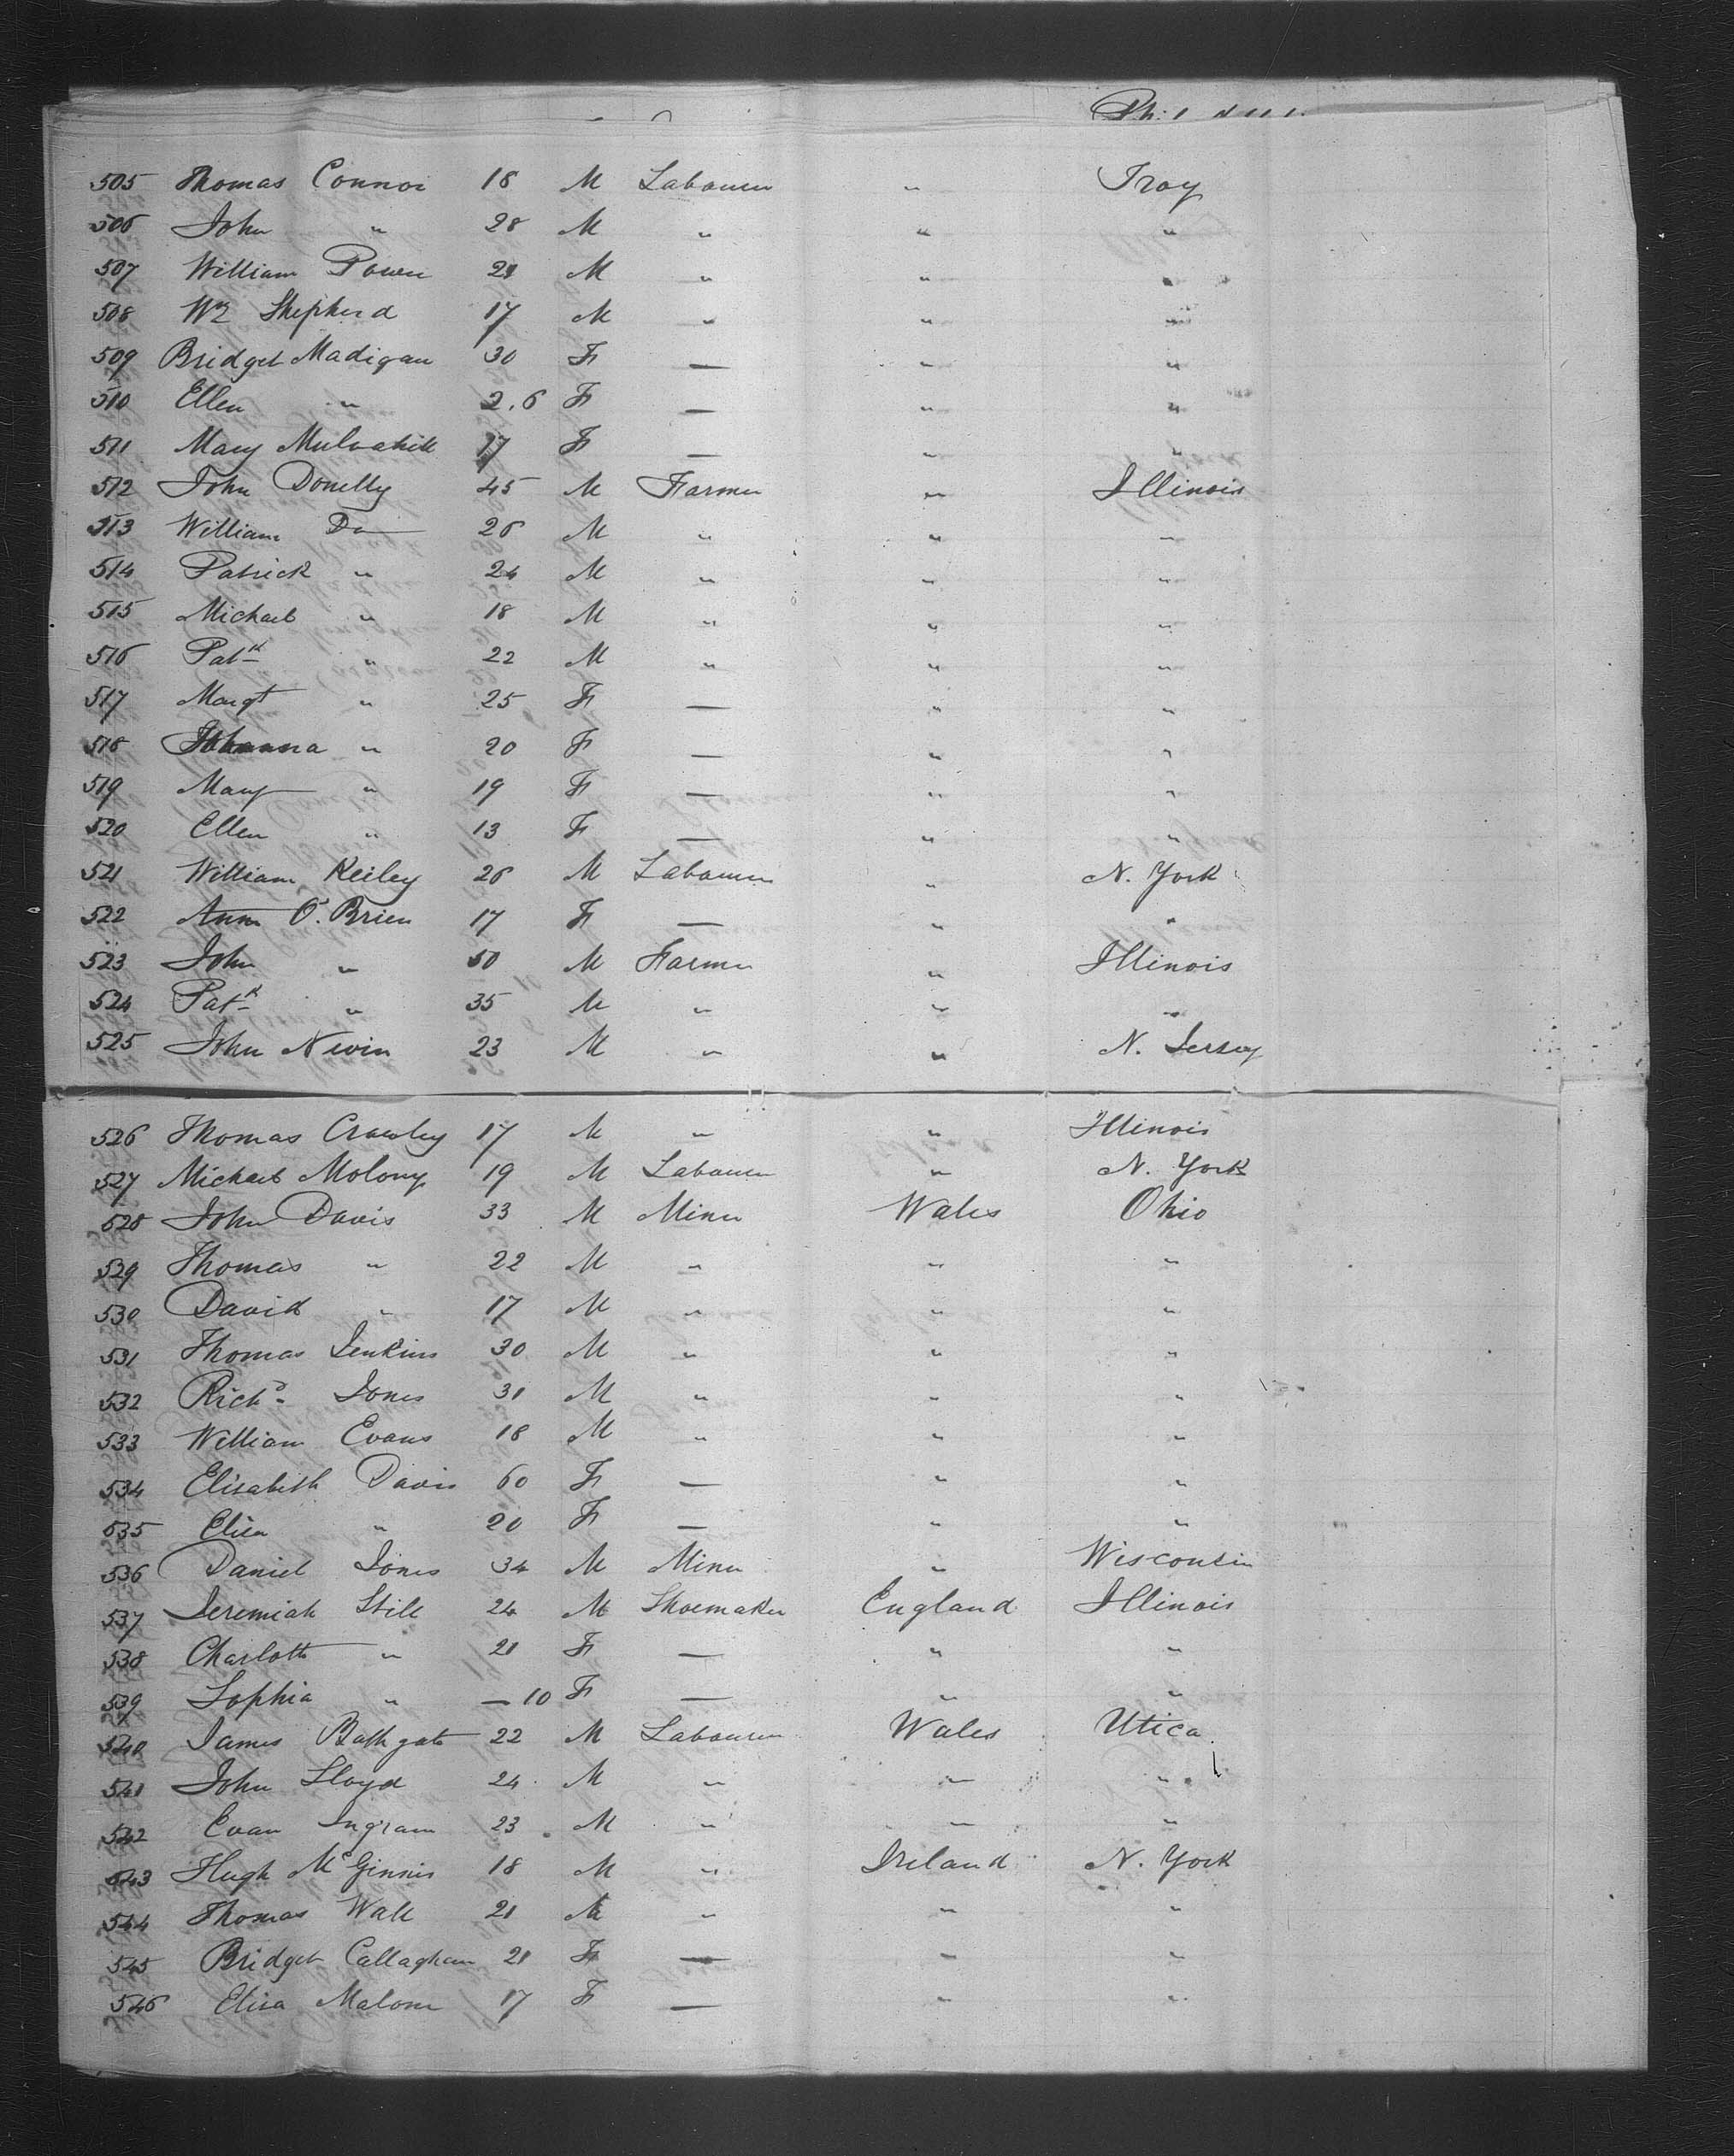 505 Thomas Connor 18 M Labourer " Troy
506 John " 28 M " " "
507 William Power 21 M " " "
508 Wm Shepherd 17 M " " "
509 Bridget Madigan 30 F — " "
510 Ellen " 2.6 F — " "
511 Mary Mulvahill 17 F — " "
512 John Donelly 45 M Farmer " Illinois
513 William Do 26 M " " "
514 Patrick " 24 M " " "
515 Michael " 18 M " " "
516 Patk " 22 M " " "
517 Margt " 25 F — " "
518 Johanna " 20 F — " "
519 Mary " 19 F — " "
520 Ellen " 13 F — " "
521 William Keiley 26 M Labourer " N. York
522 Ann O'Brien 17 F — " "
523 John " 50 M Farmer " Illinois
524 Patk " 35 M " " "
525 John Nevin 23 M " " N. Jersey
526 Thomas Crowley 17 M " " Illinois
527 Michael Molony 19 M Labourer " N. York
528 John Davis 33 M Miner Wales Ohio
529 Thomas " 22 M " " "
530 David " 17 M " " "
531 Thomas Jenkins 30 M " " "
532 Richd Jones 31 M " " "
533 William Evans 18 M " " "
534 Elisabeth Davis 60 F — " "
535 Eliza " 20 F — " "
536 Daniel Jones 34 M Miner " Wisconsin
537 Jeremiah Still 24 M Shoemaker England Illinois
538 Charlotte " 21 F — " "
539 Sophia " — 10 F — " "
540 James Bathgate 22 M Labourer Wales Utica
541 John Lloyd 24 M " " "
542 Evan Ingram 23 M " " "
543 Hugh McGinnis 18 M " Ireland N. York
544 Thomas Wall 21 M " " "
545 Bridget Callaghan 21 F — " "
546 Eliza Malone 17 F — " "